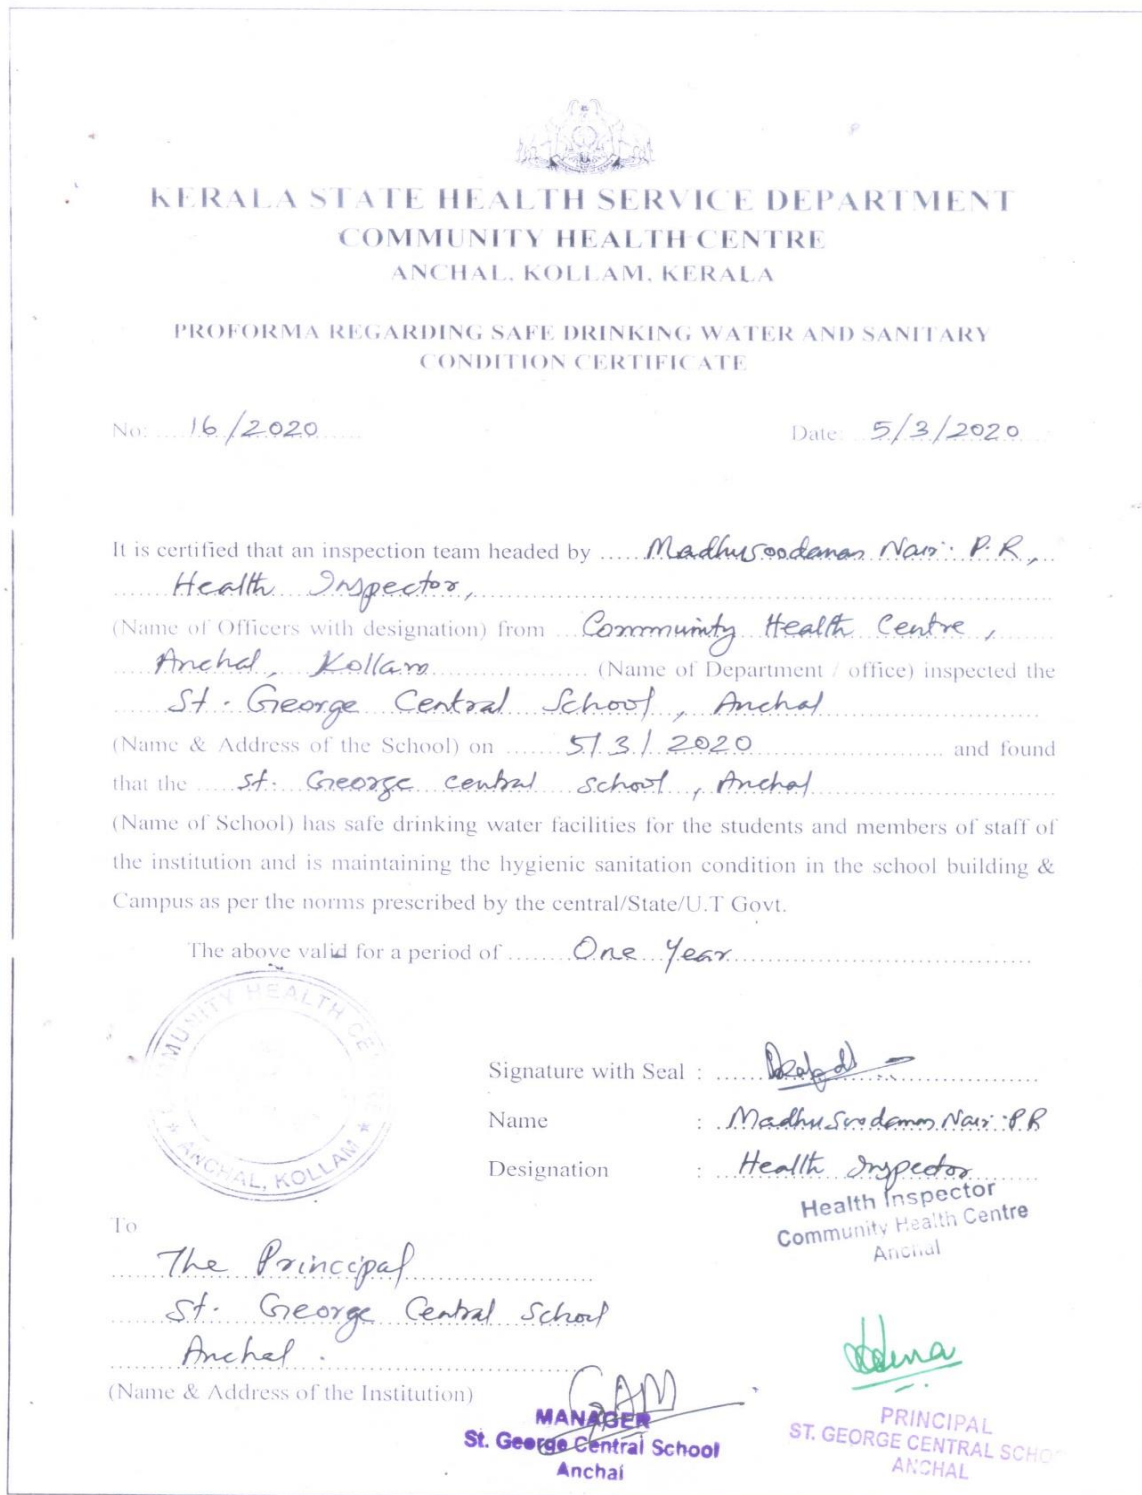 KERALA STATE HEALTH SERVICE DEPARTMENT
COMMUNITY HEALTH CENTRE
ANCHAL, KOLLAM, KERALA
PROFORMA REGARDING SAFE DRINKING WATER AND SANITARY
CONDITION CERTIFICATE
No: 16/2020 Date: 5/3/2020
It is certified that an inspection team headed by Madhusoodanan Nair P.R,
Health Inspector,
(Name of Officers with designation) from Community Health Centre,
Anchal, Kollam (Name of Department / office) inspected the
St. George Central School, Anchal
(Name & Address of the School) on 5/3/2020 and found
that the St. George central school, Anchal
(Name of School) has safe drinking water facilities for the students and members of staff of
the institution and is maintaining the hygienic sanitation condition in the school building &
Campus as per the norms prescribed by the central/State/U.T Govt.
The above valid for a period of One Year
COMMUNITY HEALTH CENTRE
ANCHAL, KOLLAM
Signature with Seal :
Name : Madhusoodanan Nair P R
Designation : Health Inspector
Health Inspector
Community Health Centre
Anchal
To
The Principal
St. George Central School
Anchal.
(Name & Address of the Institution)
MANAGER
St. George Central School
Anchal
PRINCIPAL
ST. GEORGE CENTRAL SCHO
ANCHAL